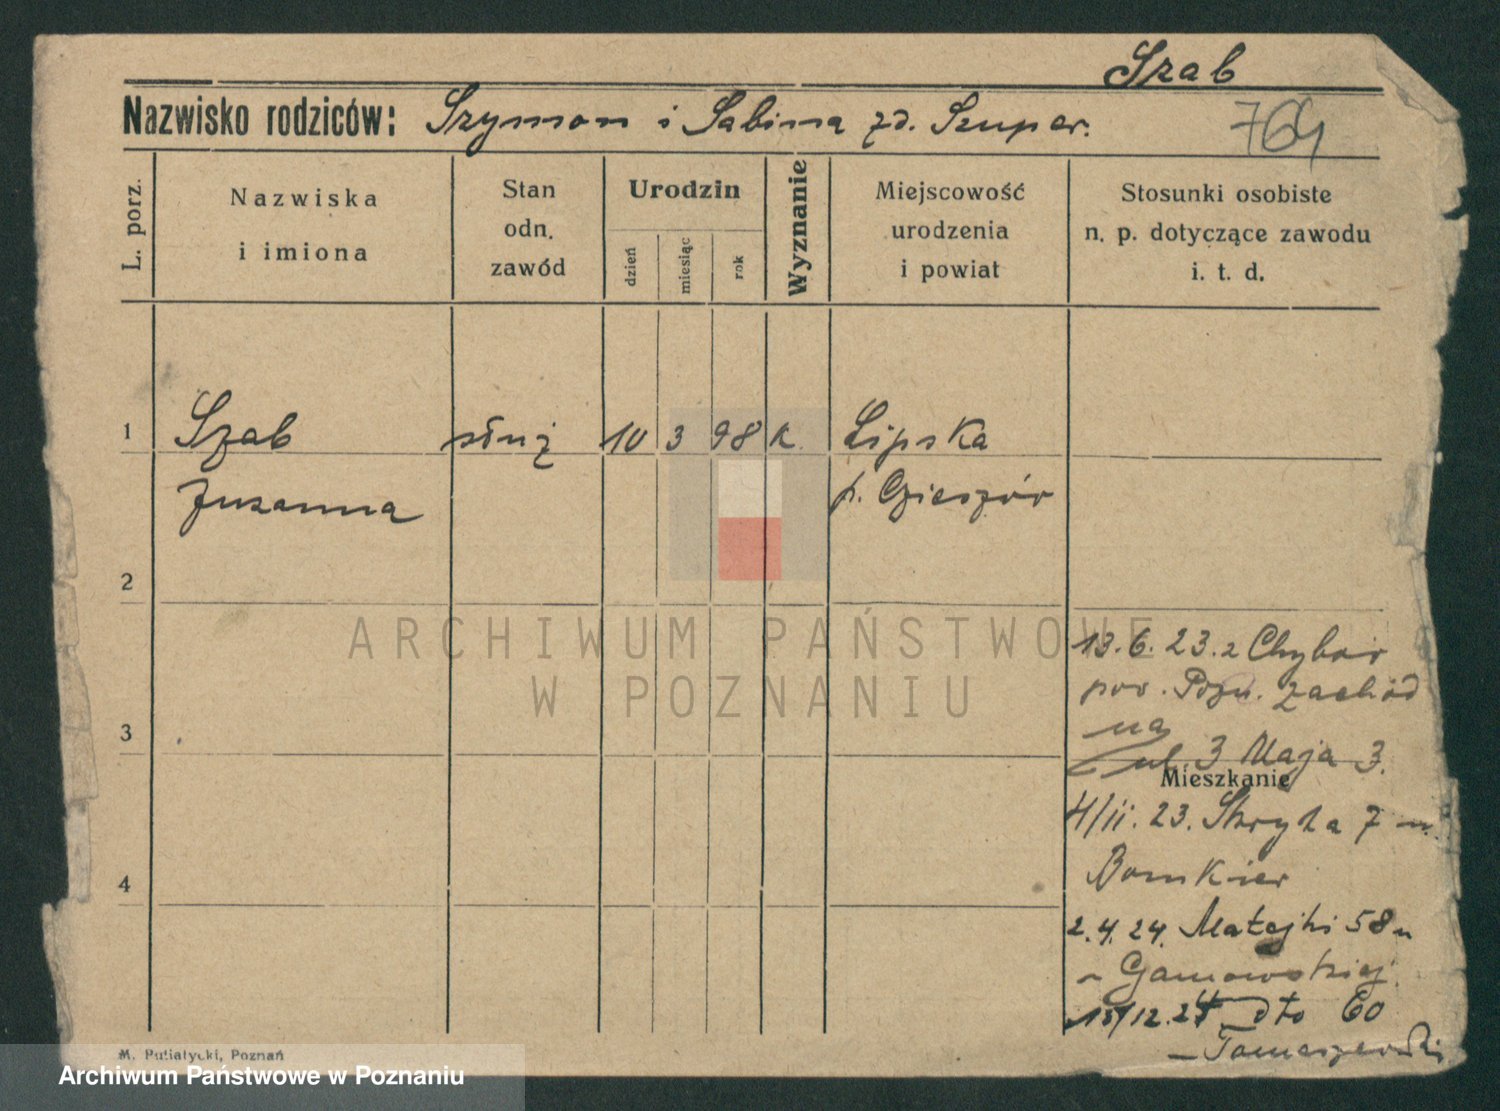 Szab
Nazwisko rodziców: Szymon i Sabina zd. Szuper.
764
L. porz.
Nazwiska
i imiona
Stan
odn.
zawód
Urodzin
dzień
miesiąc
rok
Wyznanie
Miejscowość
urodzenia
i powiat
Stosunki osobiste
n. p. dotyczące zawodu
i. t. d.
1 Szab służ 10 3 98 k. Lipska
Zuzanna p. Cieszór
2
13.6.23. z Chybar
pow. Pozn. zachód
3
ul 3 Maja 3.
Mieszkanie
4/11.23. Skryta 7
4
2.4.24. Matejki 58
Gamowskiej
15/12.24 dto 60
Tomaszewski
M. Putiatycki, Poznań
ARCHIWUM PAŃSTWOWE
W POZNANIU
Archiwum Państwowe w Poznaniu